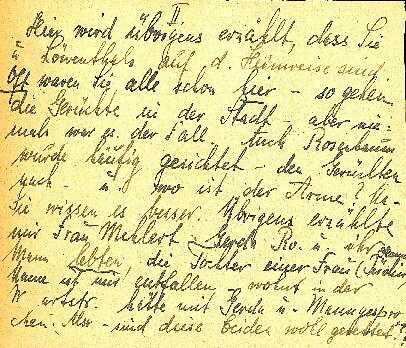 II
Hier wird übrigens erzählt, dass Sie
u Löwenthals auf d. Heimreise sind.
Oft waren Sie alle schon hier – so gehen
die Gerüchte in der Stadt – aber nie-
mals war es der Fall. Auch Rosenbaum
wurde häufig gesichtet – den Gerüchten
nach – u. wo ist der Arme? Na –
Sie wissen es besser. Übrigens erzählte
mir Frau Mehlert, Gerda Ro. u. ihr
Mann lebten, die Tochter einer Frau (Jüdin,
Name ist mir entfallen, wohnt in der
W. artstr. hätte mit Gerda u. Mann gespro
chen. Also – sind diese beiden wohl gerettet?